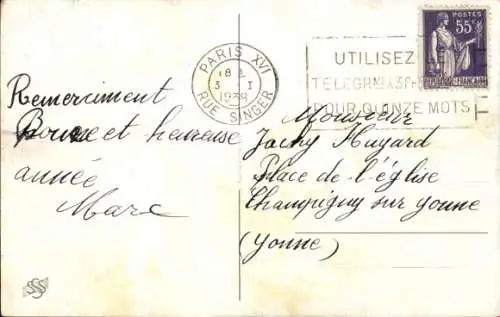 Remerciment
Bonne et heureuse
année
Marc
PARIS XVI
18
3 I
1938
RUE SINGER
UTILISEZ LE
TELEGRAMME
POUR QUINZE MOTS
POSTES
55c
REPUBLIQUE FRANÇAISE
Monsieur
Jacky Huyard
Place de l'église
Champigny sur Yonne
(Yonne)